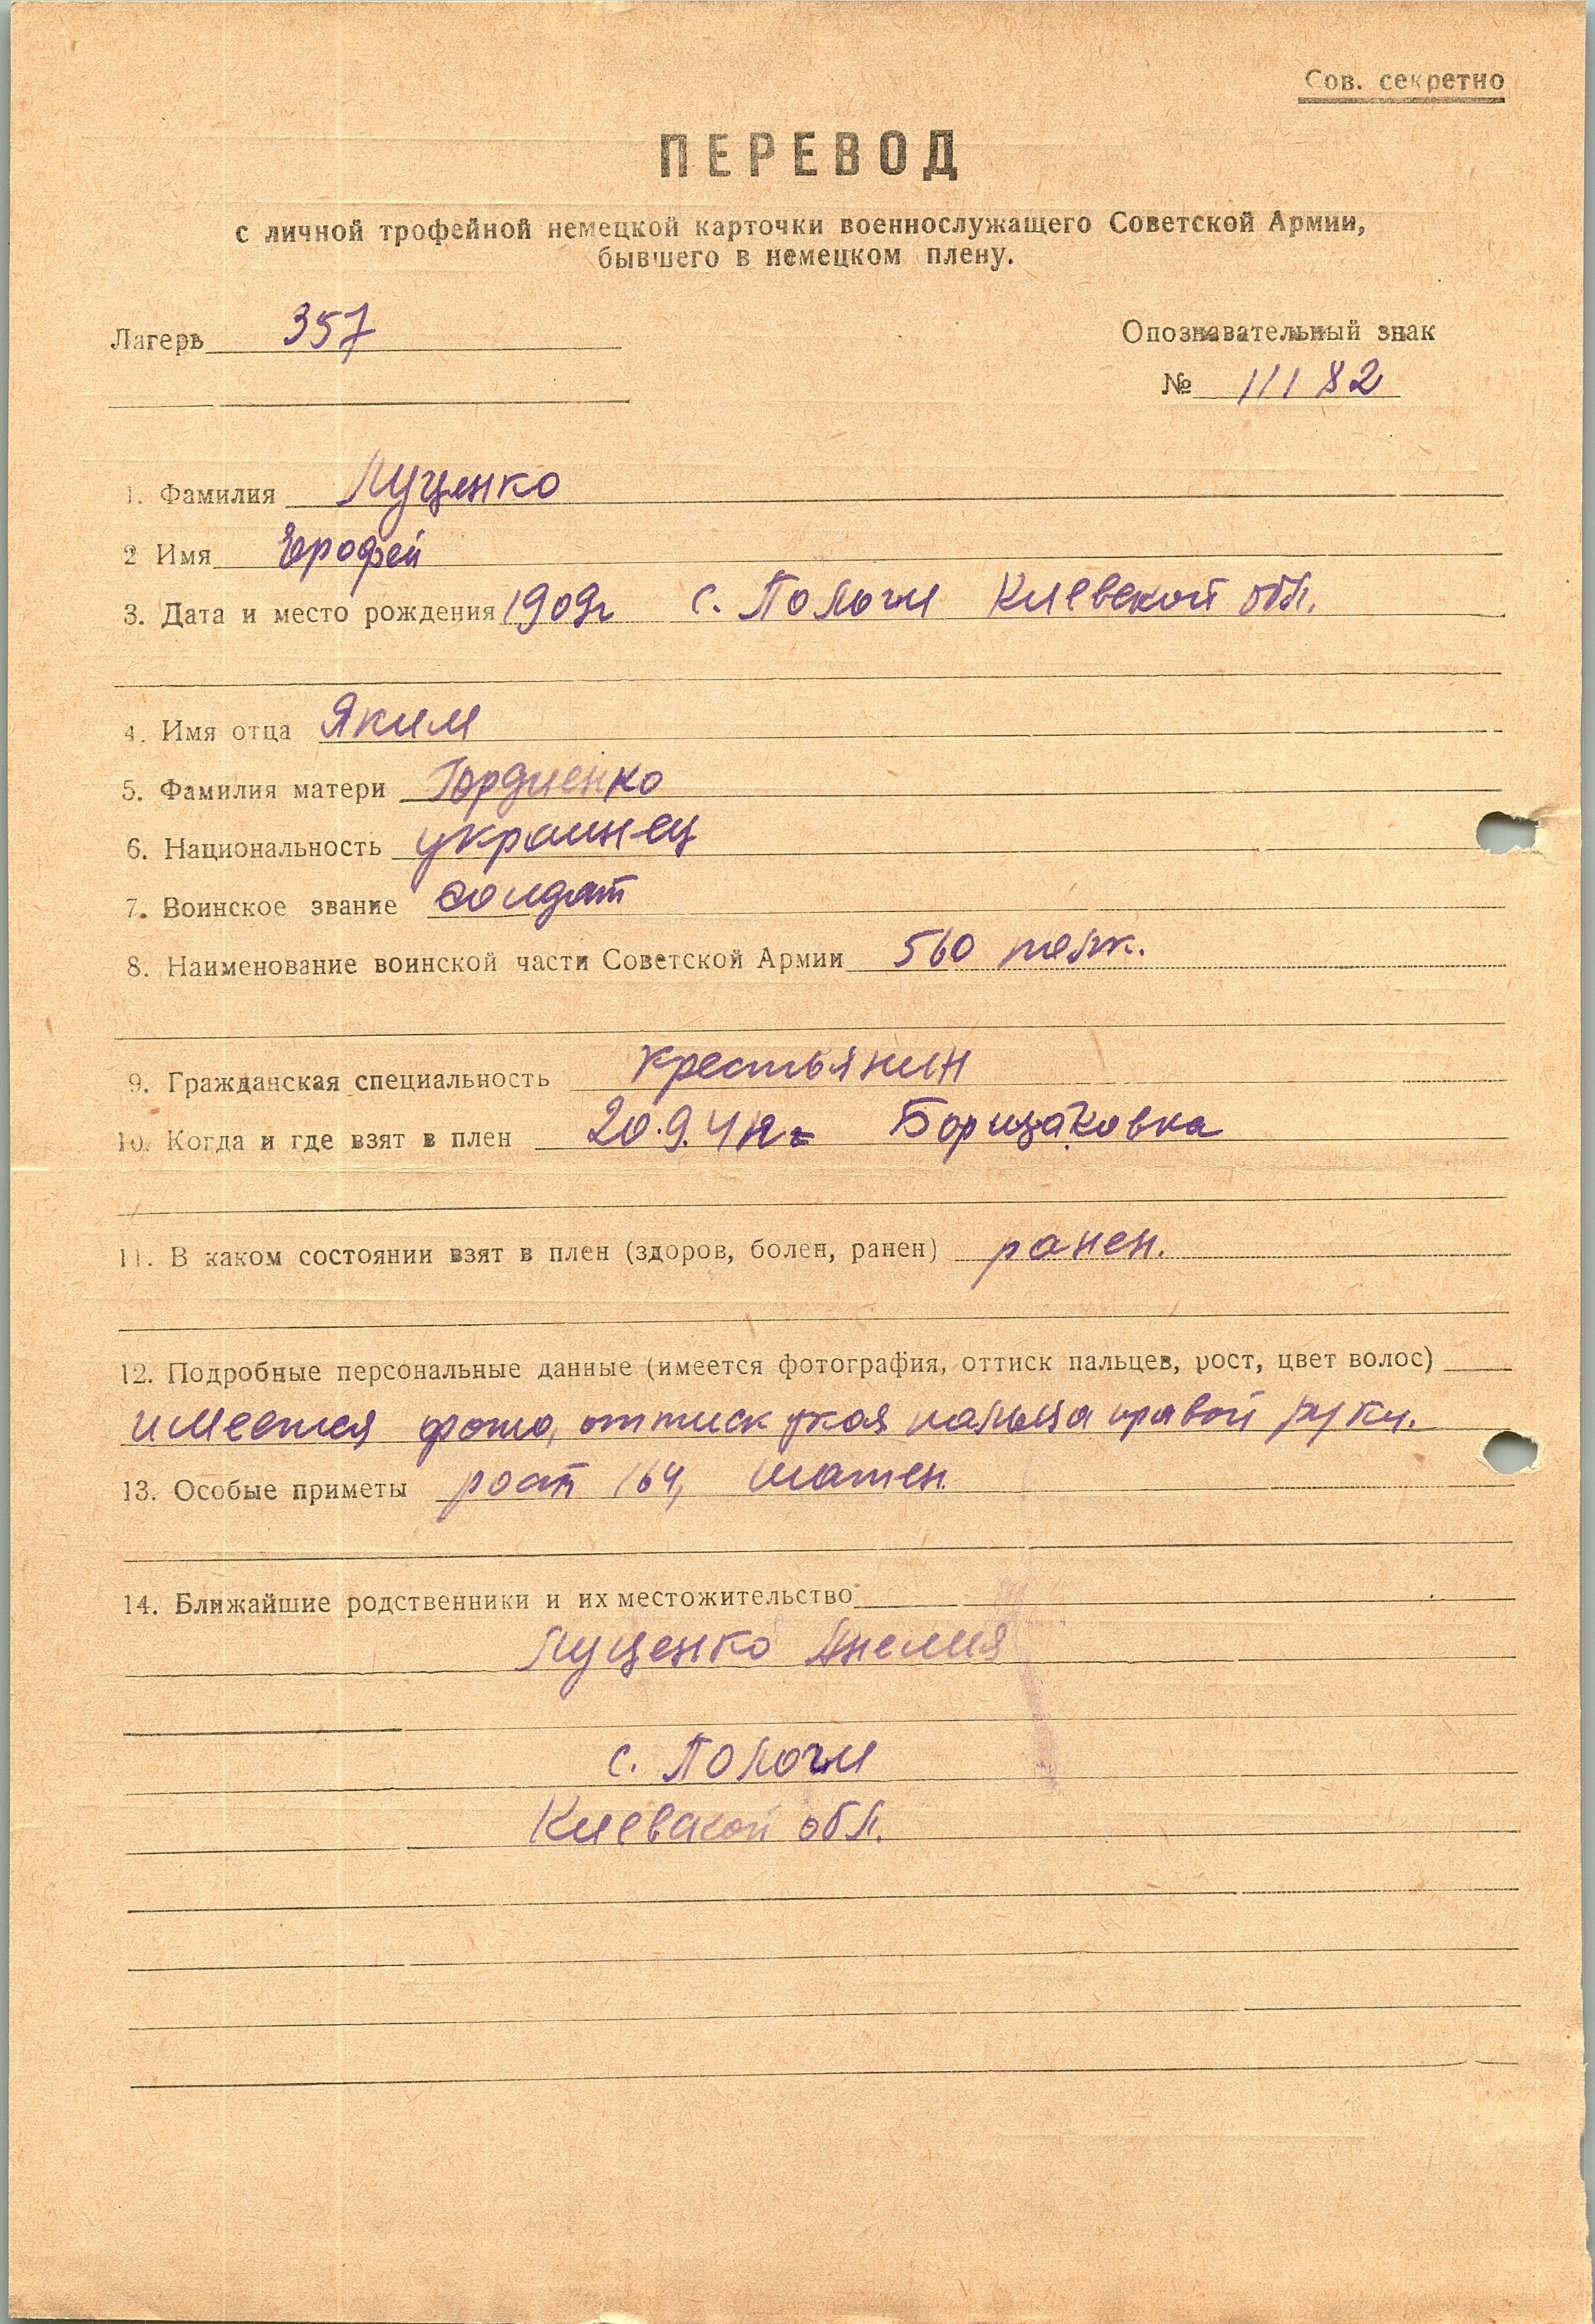 Сов. секретно
ПЕРЕВОД
с личной трофейной немецкой карточки военнослужащего Советской Армии,
бывшего в немецком плену.
Лагерь 357
Опознавательный знак
№ 11182
1. Фамилия Луценко
2 Имя Ерофей
3. Дата и место рождения 1909г с. Пологи Киевской обл.
4. Имя отца Яким
5. Фамилия матери Гордиенко
6. Национальность украинец
7. Воинское звание солдат
8. Наименование воинской части Советской Армии 560 полк.
9. Гражданская специальность крестьянин
10. Когда и где взят в плен 20.9.41г. Борщаковка
11. В каком состоянии взят в плен (здоров, болен, ранен) ранен.
12. Подробные персональные данные (имеется фотография, оттиск пальцев, рост, цвет волос)
имеется фото, оттиск указ пальца правой руки.
13. Особые приметы рост 164, шатен.
14. Ближайшие родственники и их местожительство
Луценко Анелия
с. Пологи
Киевской обл.